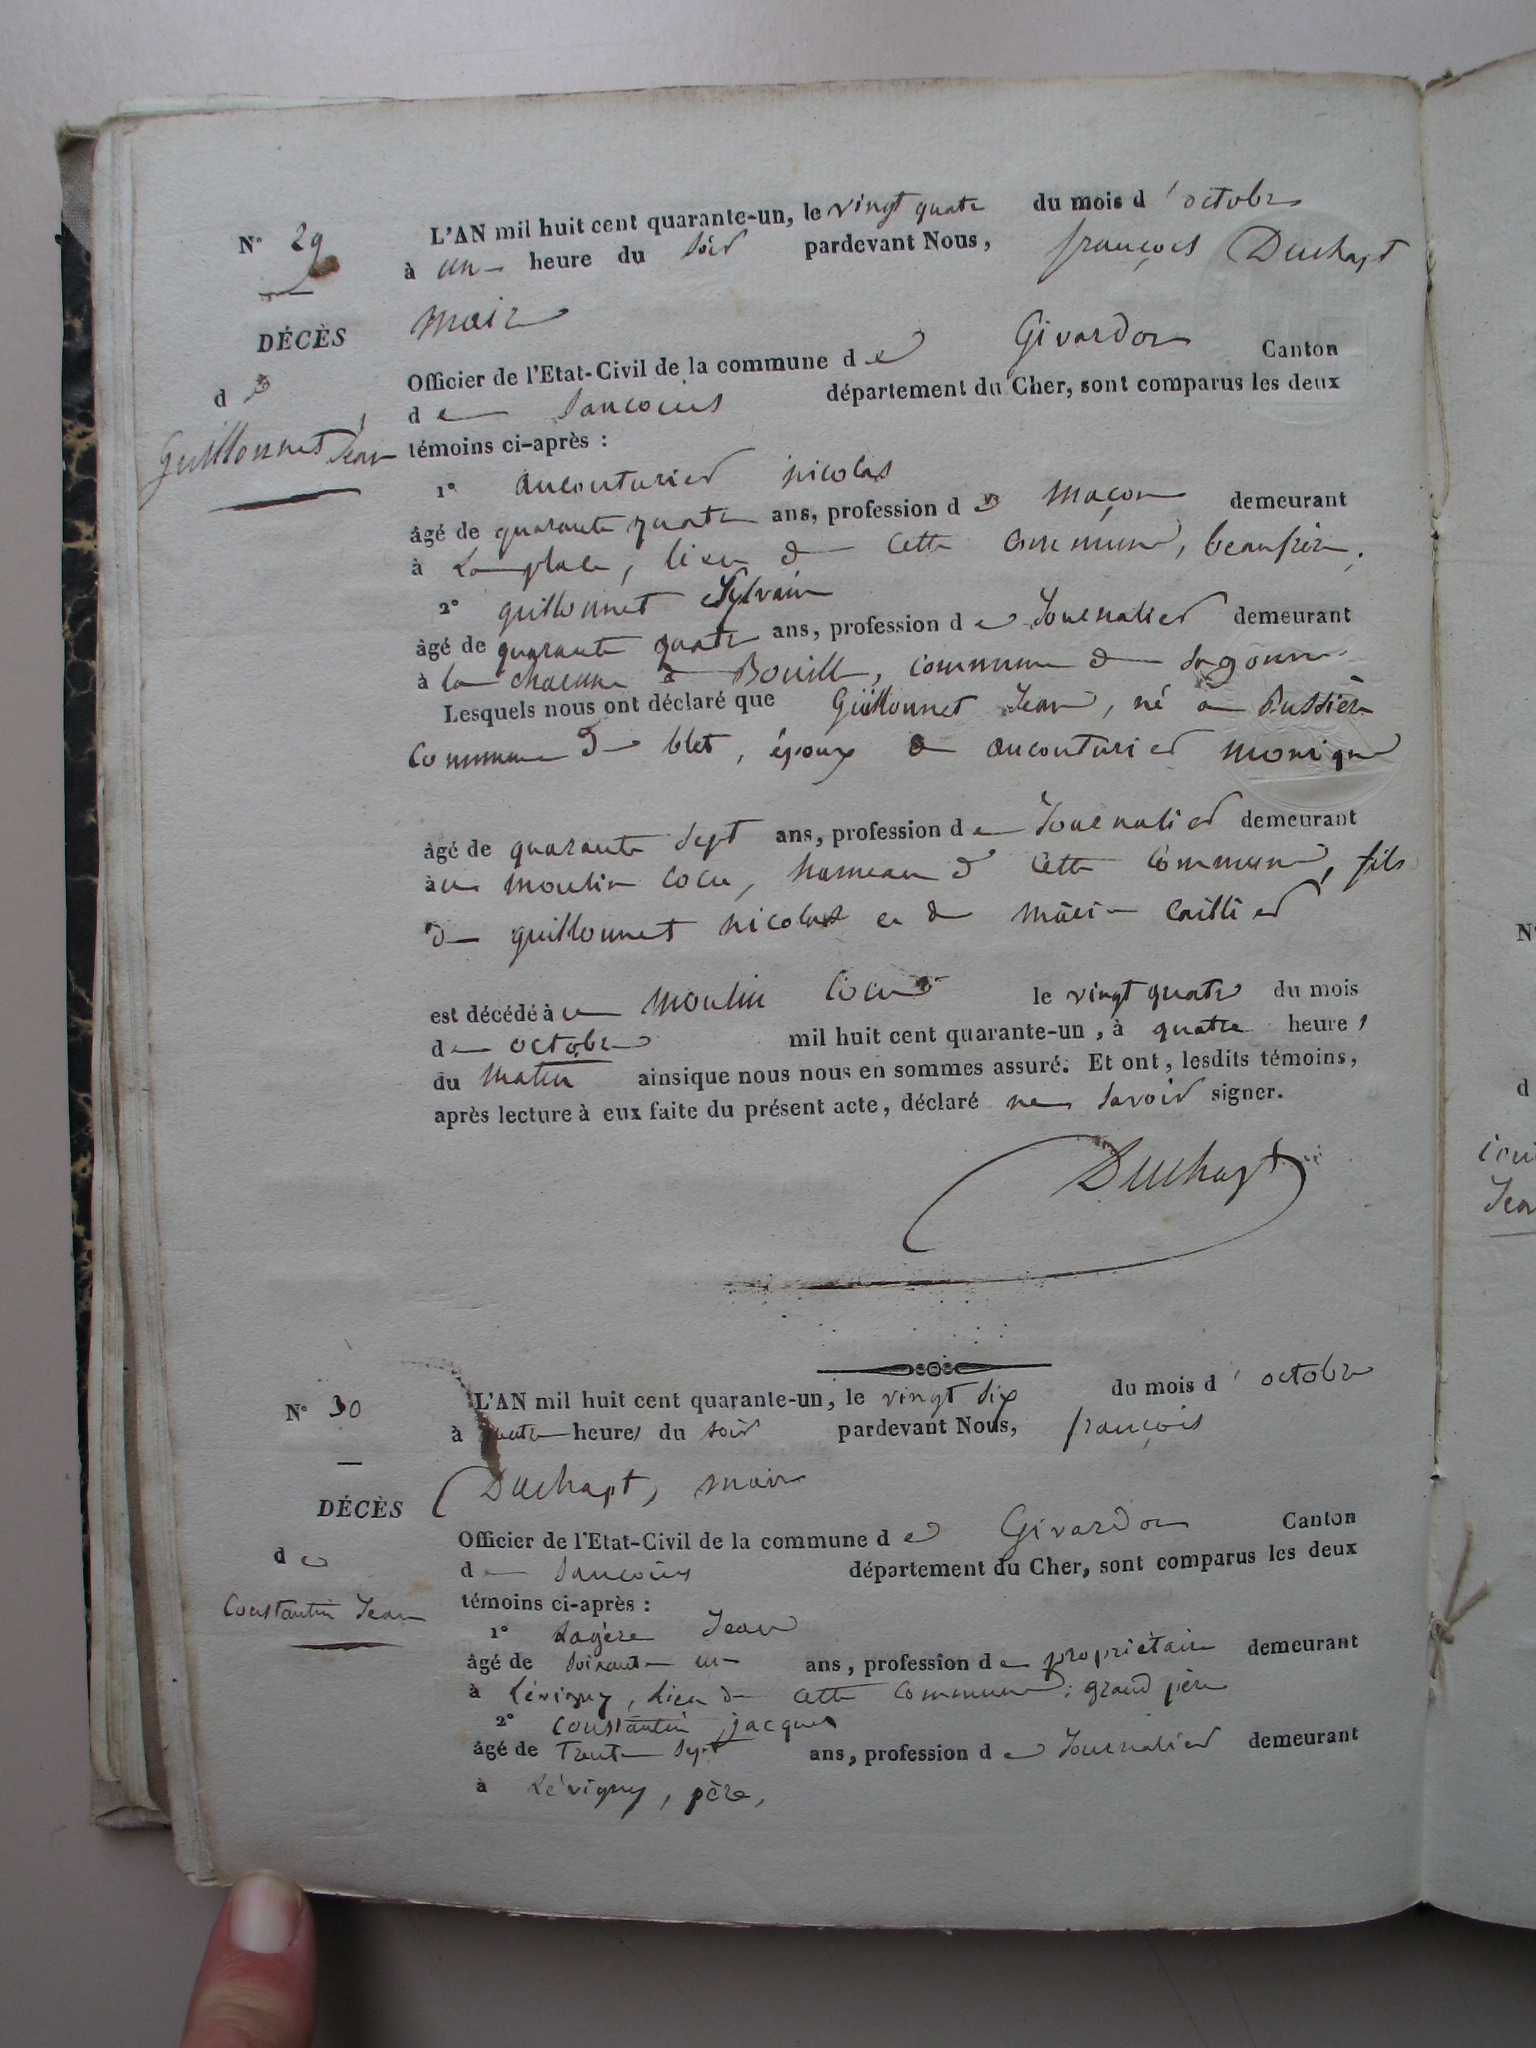 N° 29
DÉCÈS
de
Guillonnet Jean
L'AN mil huit cent quarante-un, le vingt quatre du mois d'octobre
à un heure du soir pardevant Nous, françois Duchapt
maire
Officier de l'Etat-Civil de la commune de Givardon Canton
de Sancoins département du Cher, sont comparus les deux
témoins ci-après :
1° aucouturier nicolas
âgé de quarante quatre ans, profession de maçon demeurant
à La place, lieu de cette commune, beaufrère.
2° guillonnet Sylvain
âgé de quarante quatre ans, profession de Journalier demeurant
à la de commune de Sagonne
Lesquels nous ont déclaré que Guillonnet Jean, né à Bussière
commune de blet, époux de aucouturier monique
âgé de quarante sept ans, profession de Journalier demeurant
àu moulin cocu, hameau de cette commune, fils
de guillonnet nicolas et de marie caillier
est décédé àu moulin Cocu le vingt quatre du mois
de octobre mil huit cent quarante-un, à quatre heures
du matin ainsique nous nous en sommes assuré. Et ont, lesdits témoins,
après lecture à eux faite du présent acte, déclaré ne savoir signer.
Duchapt
N° 30
DÉCÈS
de
Constantin Jean
L'AN mil huit cent quarante-un, le vingt six du mois d'octobre
à quatre heures du soir pardevant Nous, françois
Duchapt, maire
Officier de l'Etat-Civil de la commune de Givardon Canton
de Sancoins département du Cher, sont comparus les deux
témoins ci-après :
1° Lagère Jean
âgé de soixante un ans, profession de propriétaire demeurant
à Lévigny, lieu de cette commune, grand père
2° constantin jacques
âgé de trente sept ans, profession de Journalier demeurant
à Lévigny, père,
N°
d
Jean